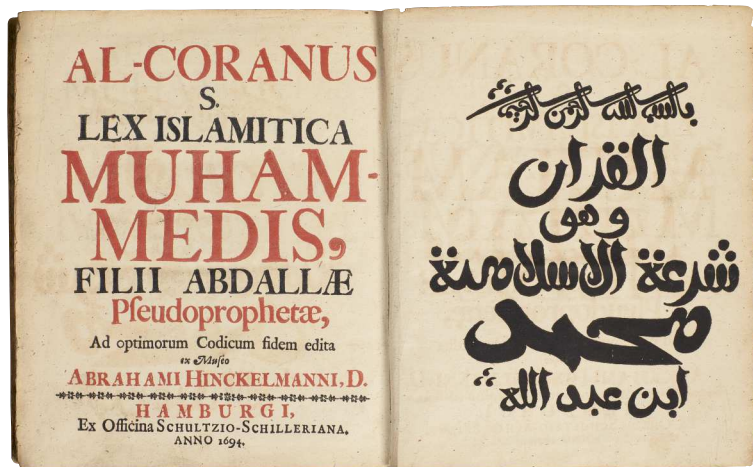 AL-CORANUS
S.
LEX ISLAMITICA
MUHAM-
MEDIS,
FILII ABDALLÆ
Pſeudoprophetæ,
Ad optimorum Codicum fidem edita
ex Muſeo
ABRAHAMI HINCKELMANNI, D.
HAMBURGI,
Ex Officina SCHULTZIO-SCHILLERIANA,
ANNO 1694.
القران
وهو
شرعة الاسلامية
محمد
ابن عبد الله